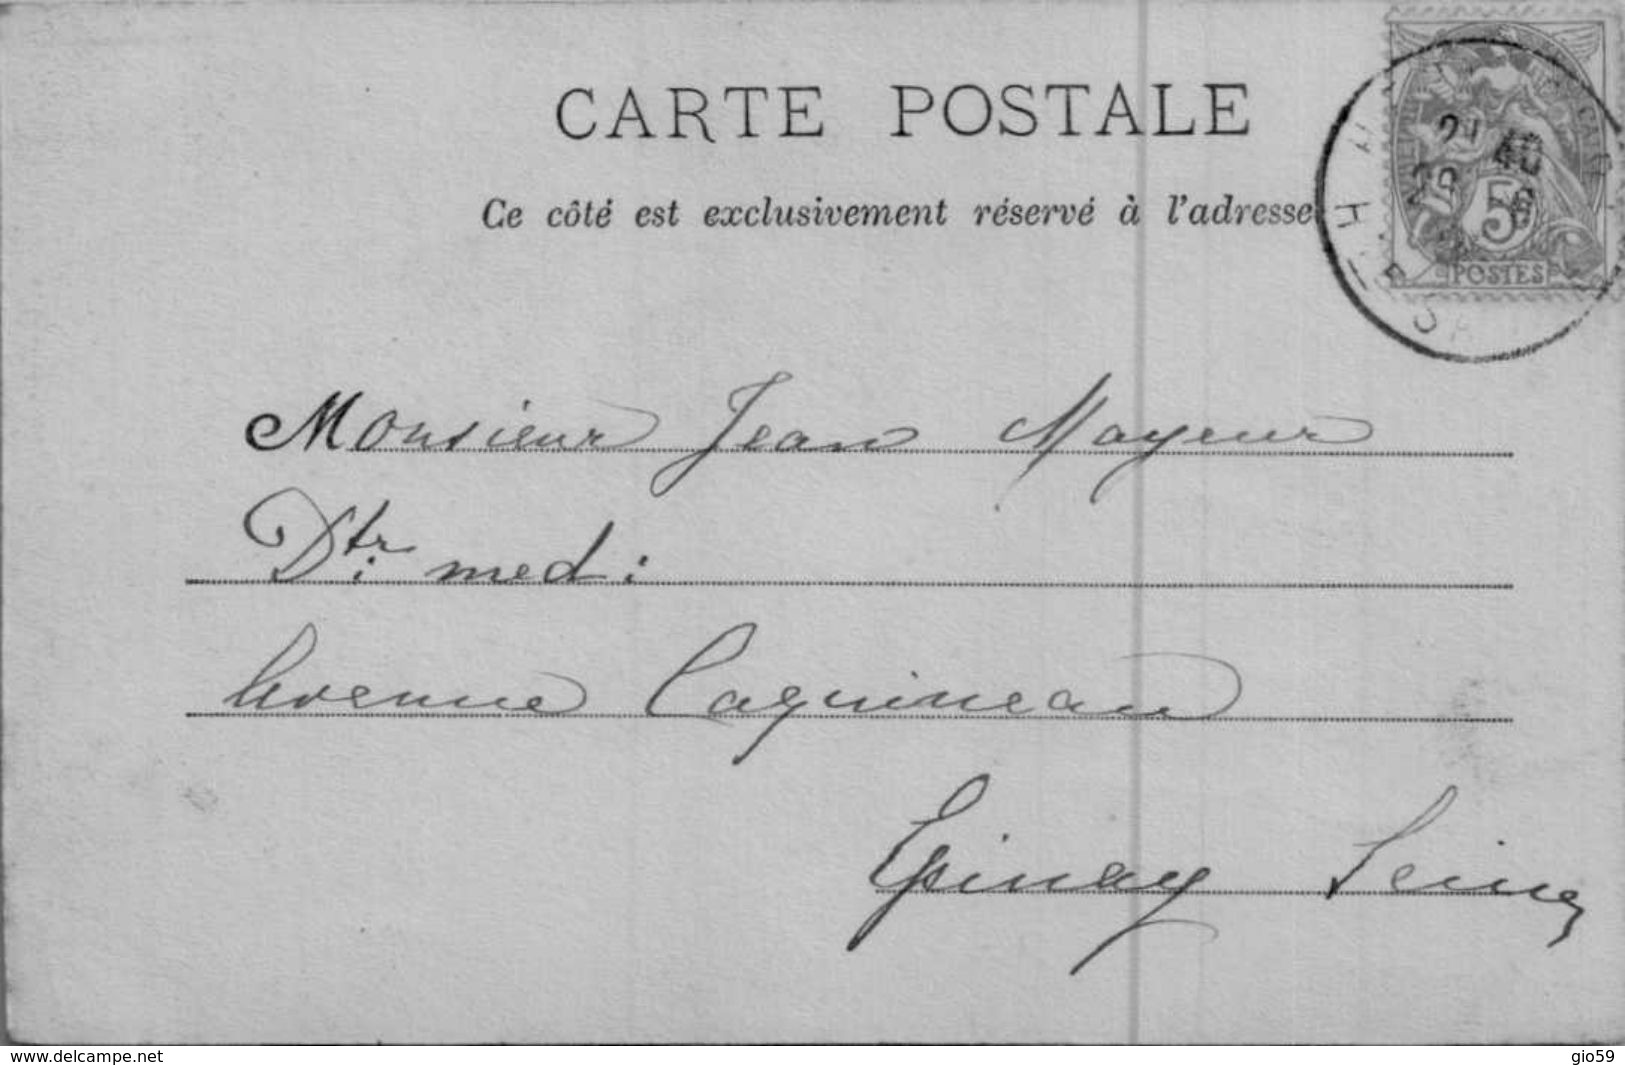 CARTE POSTALE
Ce côté est exclusivement réservé à l'adresse
5
POSTES
Monsieur Jean Mayeur
Dtr. med:
Avenue Laquineau
Epinay Seine
www.delcampe.net
gio59